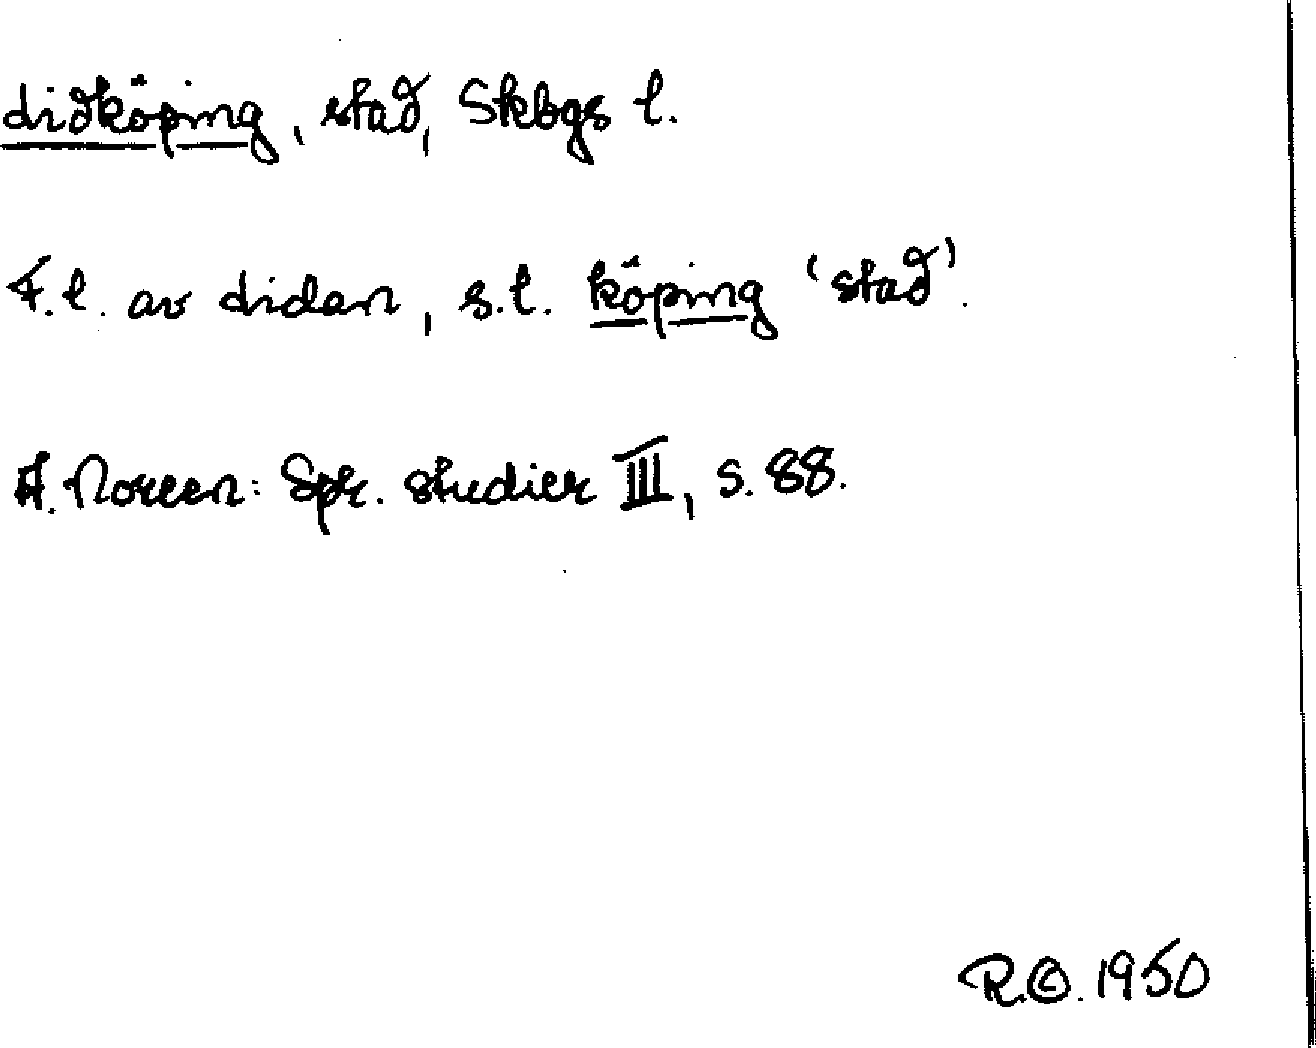 Lidköping, stad, Skbgs l.
F.l. av Lidan, s.l. köping 'stad'.
A. Noreen: Spr. studier III, s. 88.
R.G. 1950